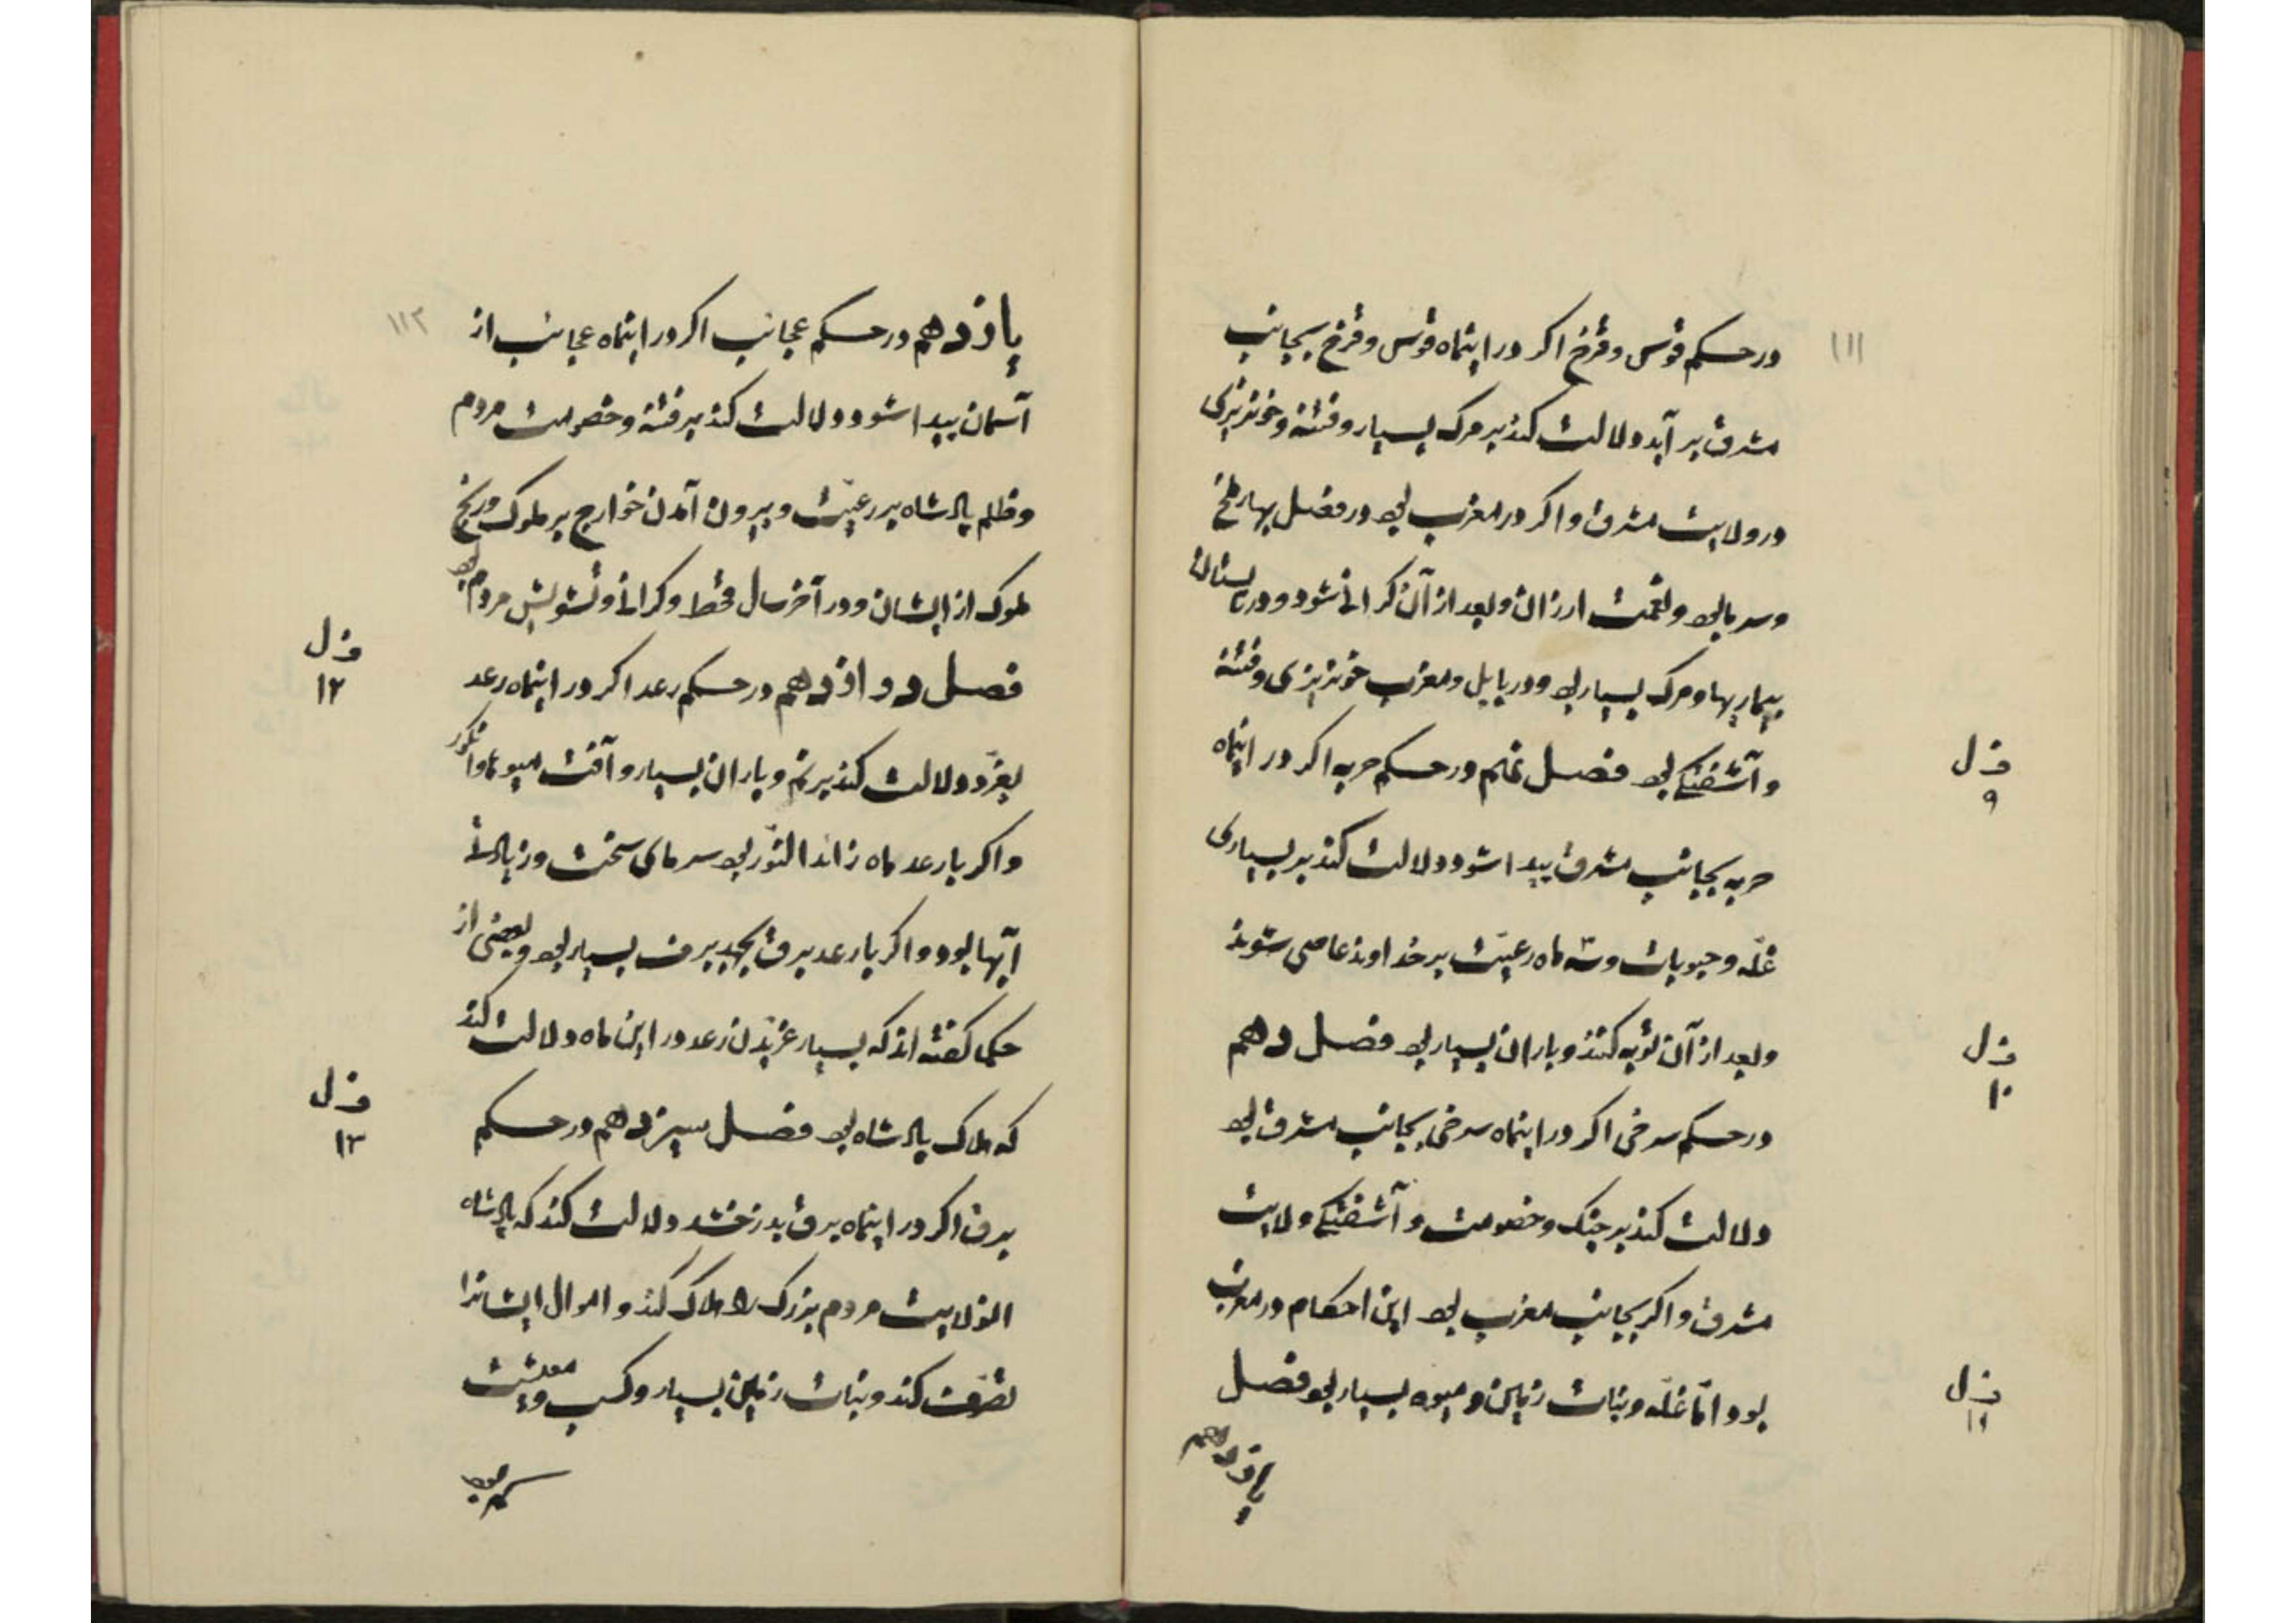 ۱۱۱
در حکم قوس و قزح اکر در اینماه قوس و قزح بجانب
مشرق بر آید دلالت کند بر مرک بسیار و فتنه و خونریزی
در ولایت مشرق و اکر در مغرب بود در فصل بهار ملخ
و سرما بود و نعمت ارزان و بعد از آن کرانی شود و در تابستان
بیماریها و مرک بسیار بود و در بابل و مغرب خونریزی و فتنه
و آشفتکی بود فصل نهم در حکم حربه اکر در اینماه
فصل ۹
حربه بجانب مشرق پیدا شود دلالت کند بر بسیاری
غلّه و حبوبات و سه ماه رعیّت بر خداوند عاصی شوند
و بعد از آن توبه کنند و باران بسیار بود فصل دهم
فصل ۱۰
در حکم سرخی اکر در اینماه سرخی بجانب مشرق بود
دلالت کند بر جنک و خصومت و آشفتکی ولایت
مشرق و اکر بجانب مغرب بود این احکام در مغرب
بود امّا غلّه و نبات زمین و میوه بسیار بود فصل
فصل ۱۱
یازدهم
۱۱۲
یازدهم در حکم عجائب اکر در اینماه عجائب از
آسمان پیدا شود دلالت کند بر فتنه و خصومت مردم
و ظلم پادشاه بر رعیّت و بیرون آمدن خوارج بر ملوک و رنج
ملوک از ایشان و در آخر سال قحط و کرانی و تشویش مردم بود
فصل دوازدهم در حکم رعد اکر در اینماه رعد
فصل ۱۲
بغرّد دلالت کند بر نم و باران بسیار و آفت میوها و انکور
و اکر با رعد ماه زائد النّور بود سرمای سخت و زیادتی
آبها بود و اکر با رعد برق بجهد برف بسیار بود و بعضی از
حکما کفته اند که بسیار غرّیدن رعد در این ماه دلالت کند
که هلاک پادشاه بود فصل سیزدهم در حکم
فصل ۱۳
برق اکر در اینماه برق بدرخشد دلالت کند که پادشاه
انولایت مردم بزرک را هلاک کند و اموال ایشانرا
تصرّف کند و نبات زمین بسیار و کسب و معیشت